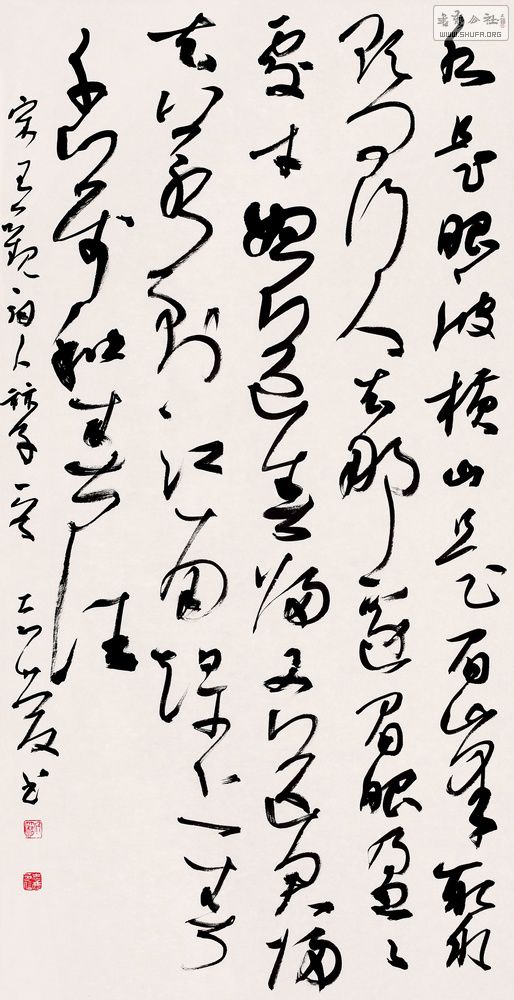 水是眼波橫山是眉峯聚
欲問行人去那邊眉眼盈盈
處才始送春歸又送君歸
去若到江南趕上春
千萬和春住
宋王觀詞卜算子一首 書
www.SHUFA.ORG